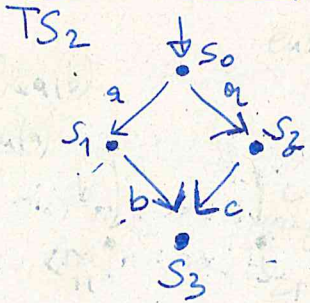 TS₂
S₀
a a
S₁ S₂
b c
S₃